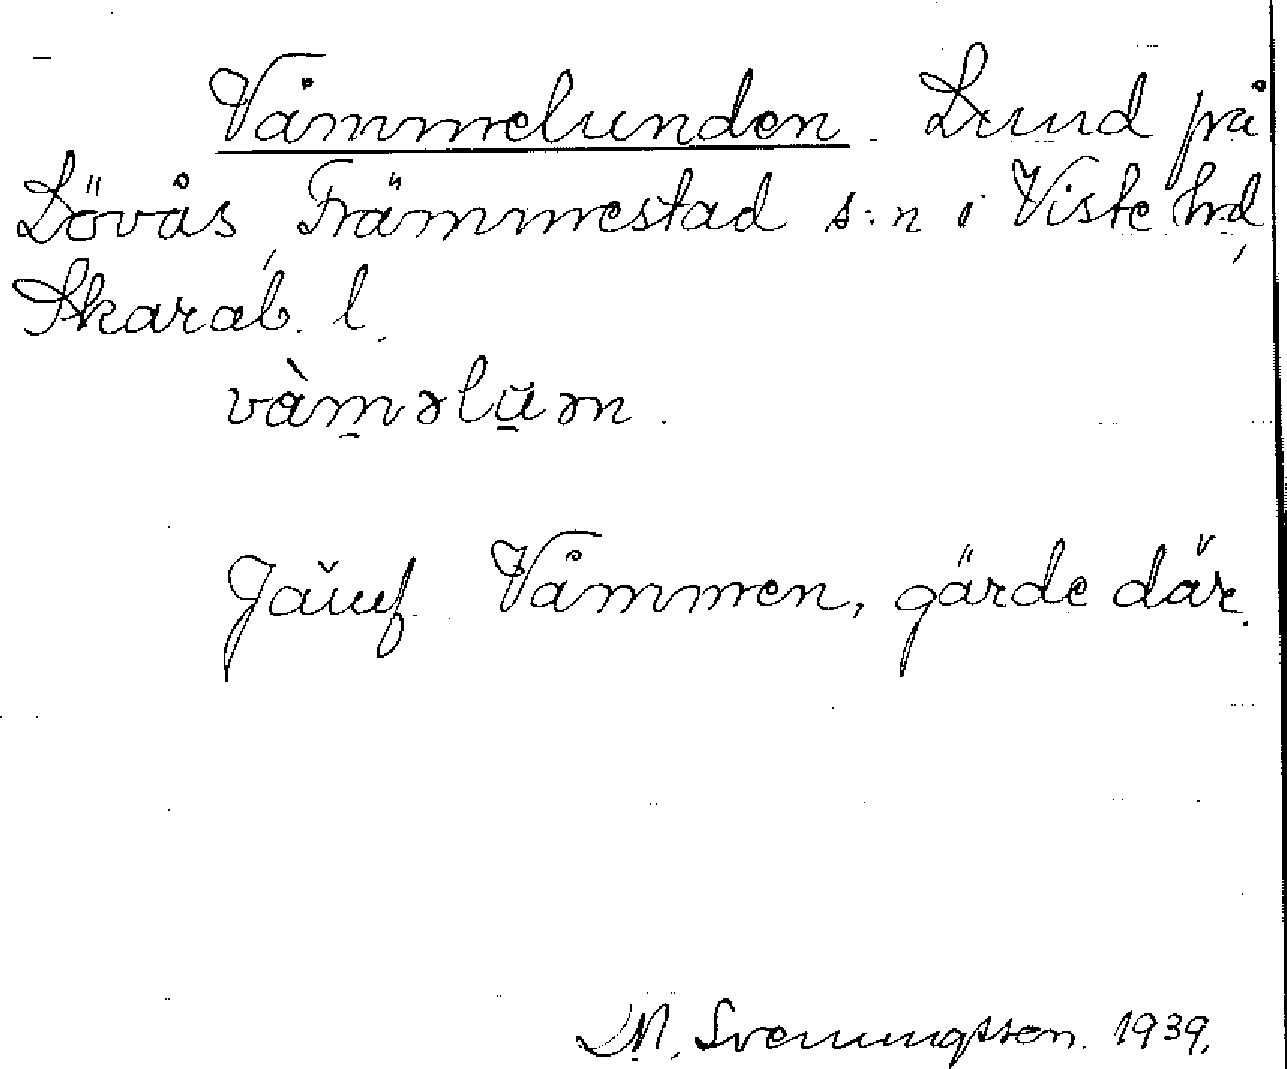 Våmmelunden. Lund på
Lövås, Främmestad s:n i Viste hrd,
Skarab. l.
vàm̱əlṵ̆ən.
Jämf. Våmmen, gärde där.
M. Svenungsson. 1939.